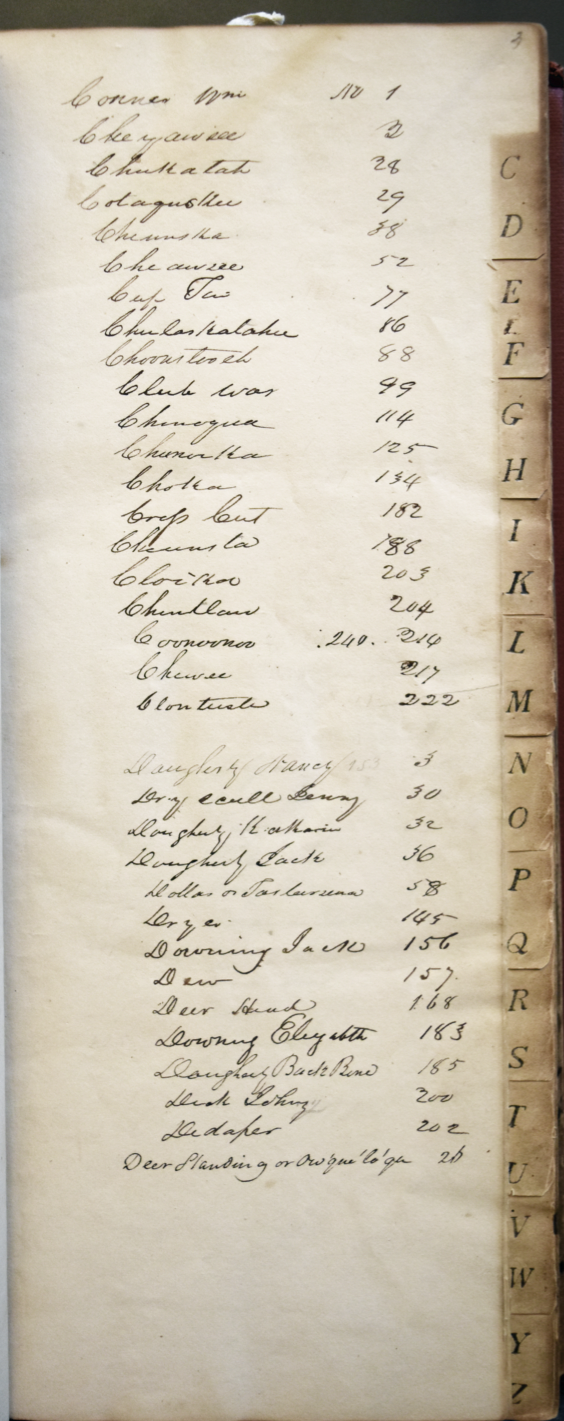 3
Conner Wm No 1
Cheyawsee 2
Chukatah 28
Cotaquskee 29
Chenuska 38
Cheawsee 52
Cup Tin 77
Chulaskatahee 86
Chooustooeh 88
Club War 99
Chinoqua 114
Chunoika 125
Choka 134
Cross Cut 182
Cheunsta 188
Cloika 203
Chutlaw 204
Coonoonoo .240. 214
Chewee 217
Clontuste 222
Daugherty Nancy 153 3
Dry scull Jenny 30
Dougherty Katharin 32
Dougherty Jack 36
Dollas or 58
Dryer 145
Downing Jack 156
Dew 157
Deer Head 168
Downing Elizabth 183
Daugherty Back Bone 185
Dick Johnzy 200
Dedaper 202
Deer Standing or Ow'que'lo'ga 26
C
D
E
F
G
H
I
K
L
M
N
O
P
Q
R
S
T
U
V
W
Y
Z